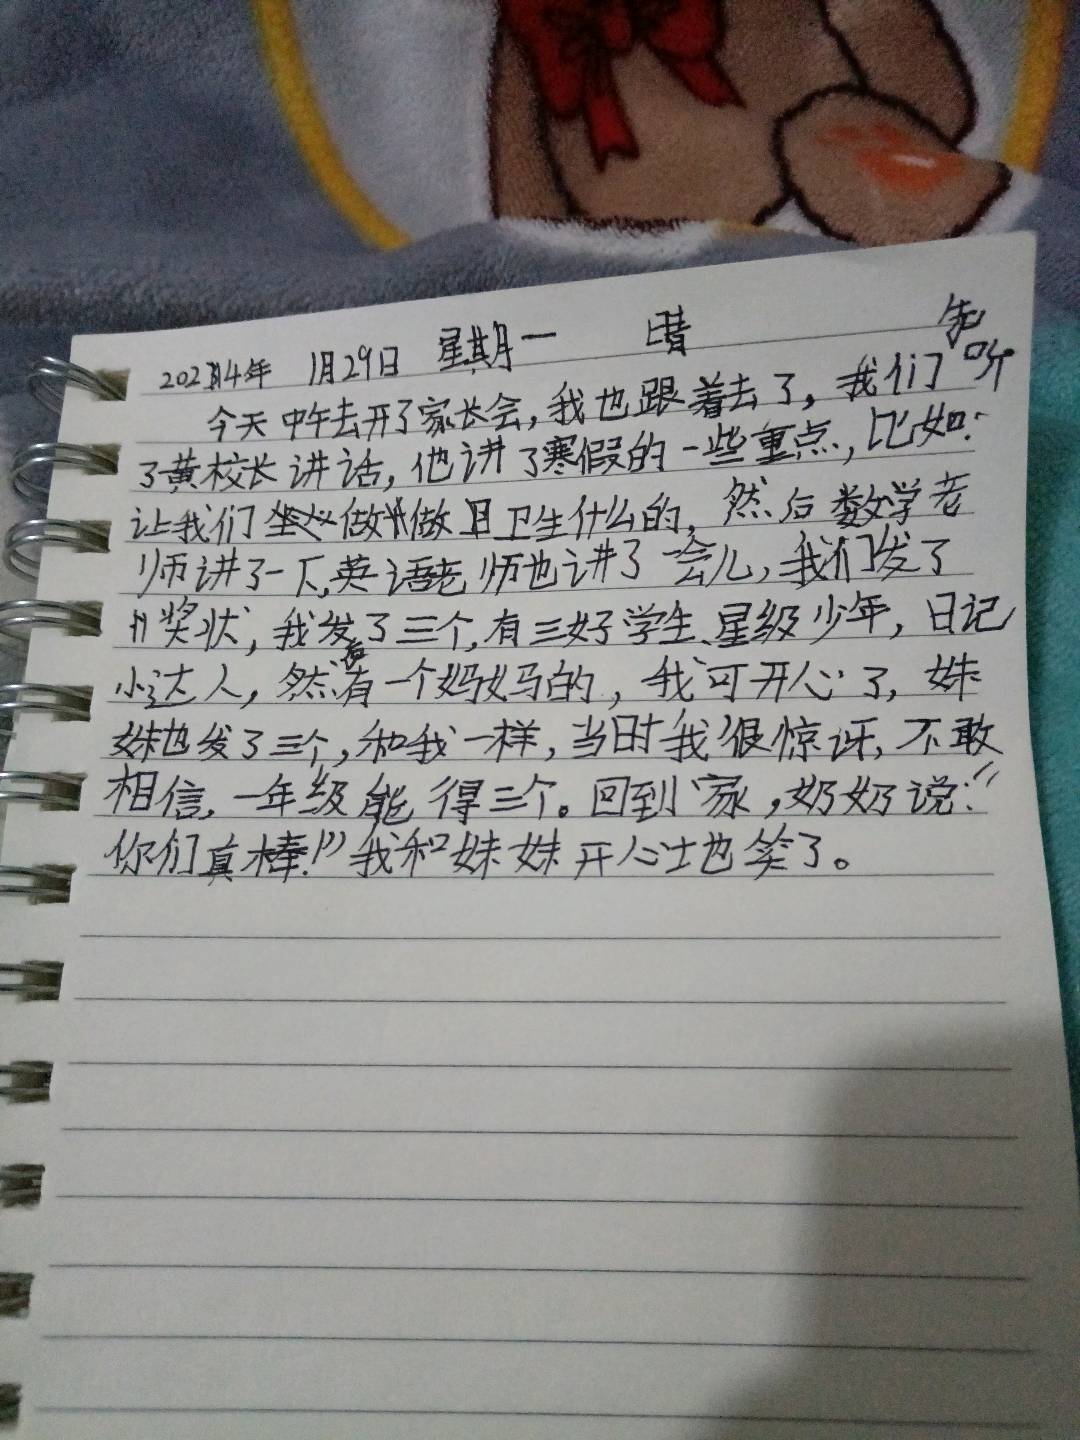 2024年 1月29日 星期一 晴
今天中午去开了家长会，我也跟着去了，我们听
了黄校长讲话，他讲了寒假的一些重点，比如：
让我们做做卫生什么的，然后数学老
师讲了一下，英语老师也讲了一会儿，我们发了
奖状，我发了三个，有三好学生、星级少年，日记
小达人，然后有一个妈妈的，我可开心了，妹
妹也发了三个，和我一样，当时我很惊讶，不敢
相信，一年级能得三个。回到家，奶奶说：“
你们真棒！”我和妹妹开心地笑了。